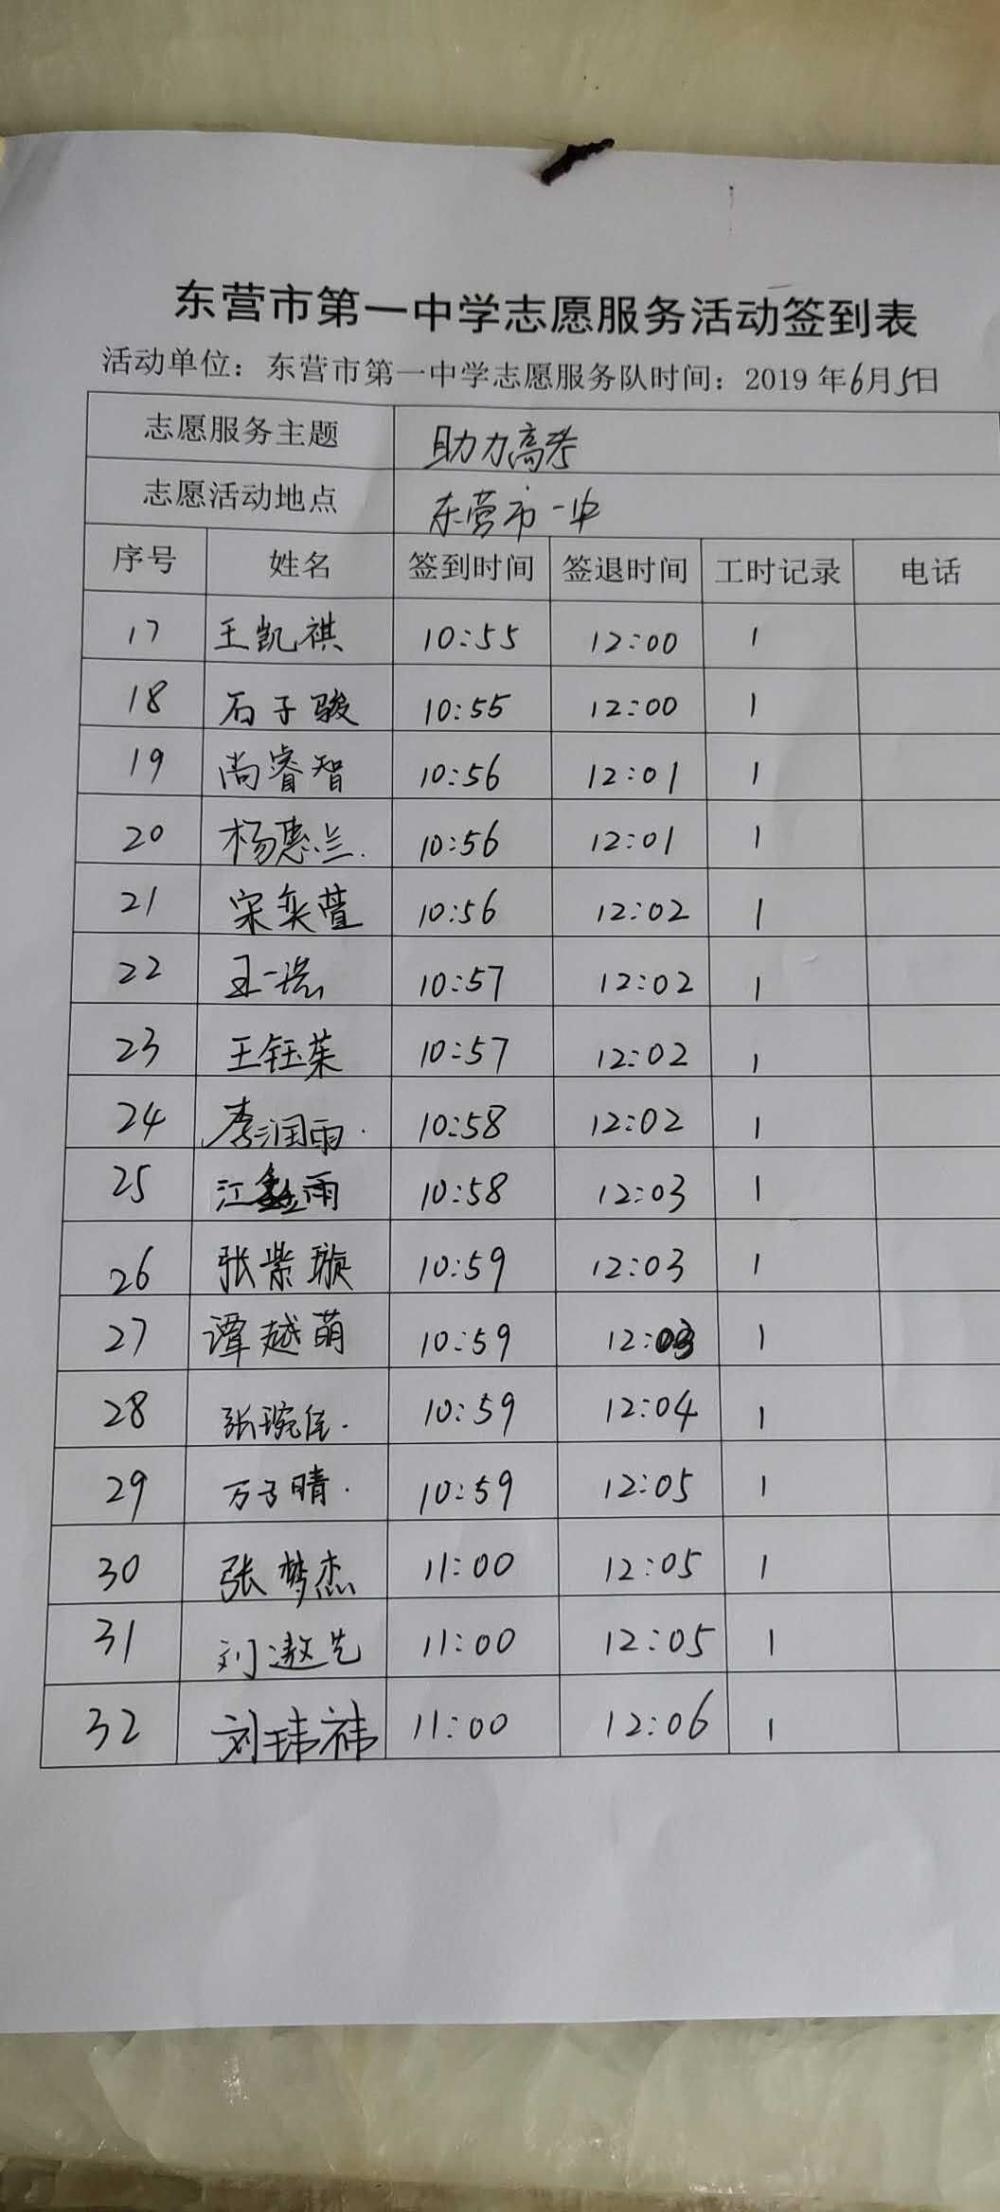 东营市第一中学志愿服务活动签到表
活动单位：东营市第一中学志愿服务队时间：2019年6月5日
志愿服务主题 助力高考
志愿活动地点 东营市一中
序号 姓名 签到时间 签退时间 工时记录 电话
17 王凯祺 10:55 12:00 1
18 石子骏 10:55 12:00 1
19 尚睿智 10:56 12:01 1
20 杨惠兰. 10:56 12:01 1
21 宋奕萱 10:56 12:02 1
22 王一 10:57 12:02 1
23 王钰茱 10:57 12:02 1
24 李润雨. 10:58 12:02 1
25 江鑫雨 10:58 12:03 1
26 张紫璇 10:59 12:03 1
27 谭越萌 10:59 12:03 1
28 张琬佳. 10:59 12:04 1
29 万子晴. 10:59 12:05 1
30 张梦杰 11:00 12:05 1
31 刘遨先 11:00 12:05 1
32 刘玮祎 11:00 12:06 1